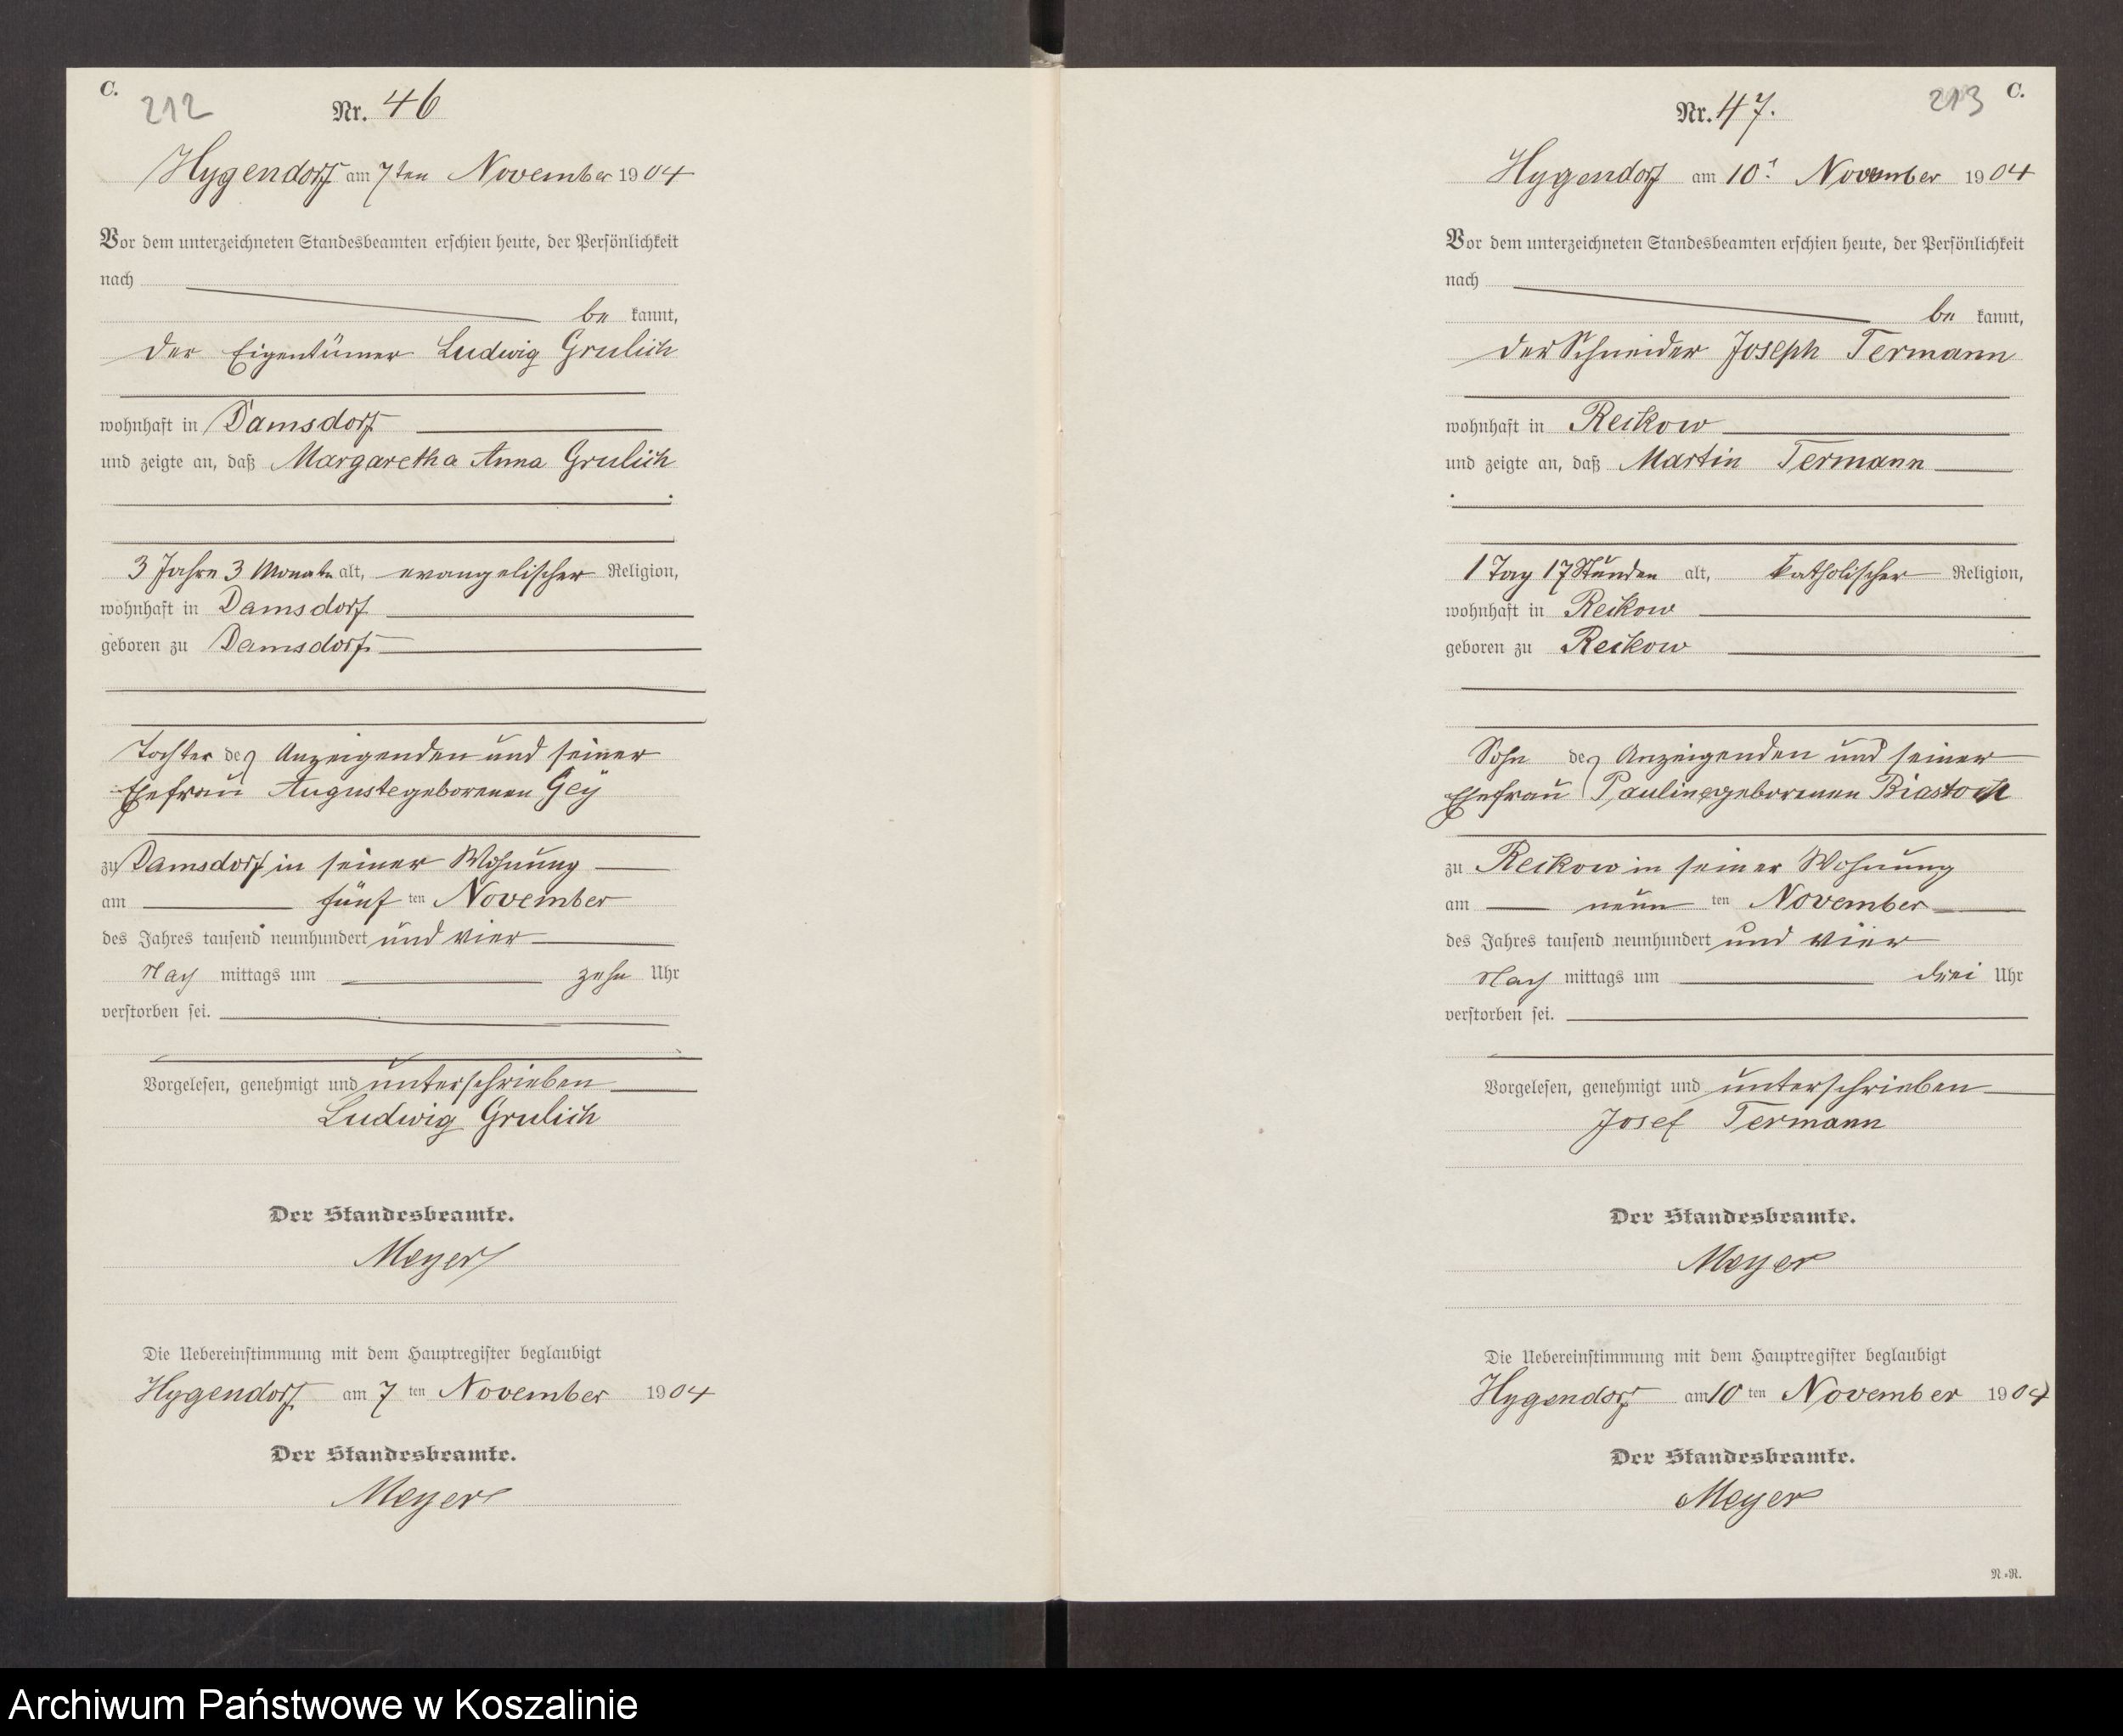 C.
212
Nr. 46
Hygendorf am 7ten November 1904
Vor dem unterzeichneten Standesbeamten erschien heute, der Persönlichkeit
nach
be kannt,
der Eigentümer Ludwig Grulich
wohnhaft in Damsdorf
und zeigte an, daß Margaretha Anna Grulich
3 Jahre 3 Monate alt, evangelischer Religion,
wohnhaft in Damsdorf
geboren zu Damsdorf
Tochter des Anzeigenden und seiner
Ehefrau Auguste geborenen Gey
zu Damsdorf in seiner Wohnung
am fünf ten November
des Jahres tausend neunhundert und vier
Nach mittags um zehn Uhr
verstorben sei.
Vorgelesen, genehmigt und unterschrieben
Ludwig Grulich
Der Standesbeamte.
Meyer
Die Uebereinstimmung mit dem Hauptregister beglaubigt
Hygendorf am 7 ten November 1904
Der Standesbeamte.
Meyer
213 C.
Nr. 47.
Hygendorf am 10t November 1904
Vor dem unterzeichneten Standesbeamten erschien heute, der Persönlichkeit
nach
be kannt,
der Schneider Joseph Termann
wohnhaft in Reckow
und zeigte an, daß Martin Termann
1 Tag 17 Stunden alt, katholischer Religion,
wohnhaft in Reckow
geboren zu Reckow
Sohn des Anzeigenden und seiner
Ehefrau Pauline geborenen Biastock
zu Reckow in seiner Wohnung
am neun ten November
des Jahres tausend neunhundert und vier
Nach mittags um drei Uhr
verstorben sei.
Vorgelesen, genehmigt und unterschrieben
Josef Termann
Der Standesbeamte.
Meyer
Die Uebereinstimmung mit dem Hauptregister beglaubigt
Hygendorf am 10 ten November 1904
Der Standesbeamte.
Meyer
N.=R.
Archiwum Państwowe w Koszalinie